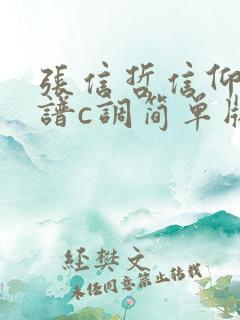 張信哲信仰
譜c調简单版
経樊文
未经同意禁止转载